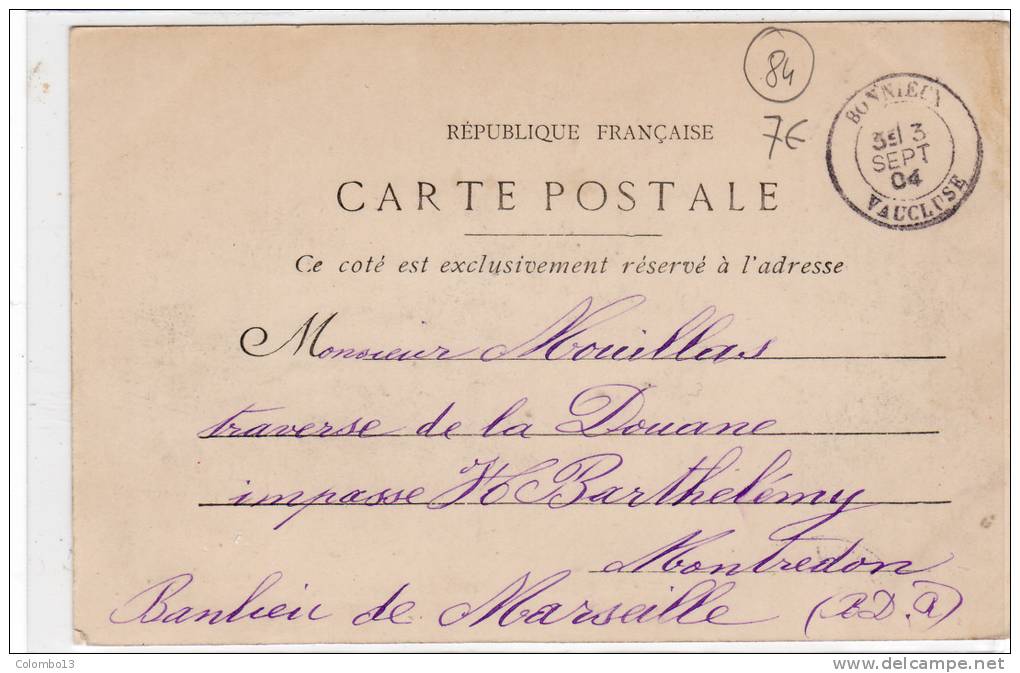 84
7€
BONNIEUX
3E 3
SEPT
04
VAUCLUSE
RÉPUBLIQUE FRANÇAISE
CARTE POSTALE
Ce coté est exclusivement réservé à l'adresse
Monsieur Mouillas
traverse de la Douane
impasse H Barthélémy
Montredon
Banlieu de Marseille (B.D.R)
Colombo13
www.delcampe.net